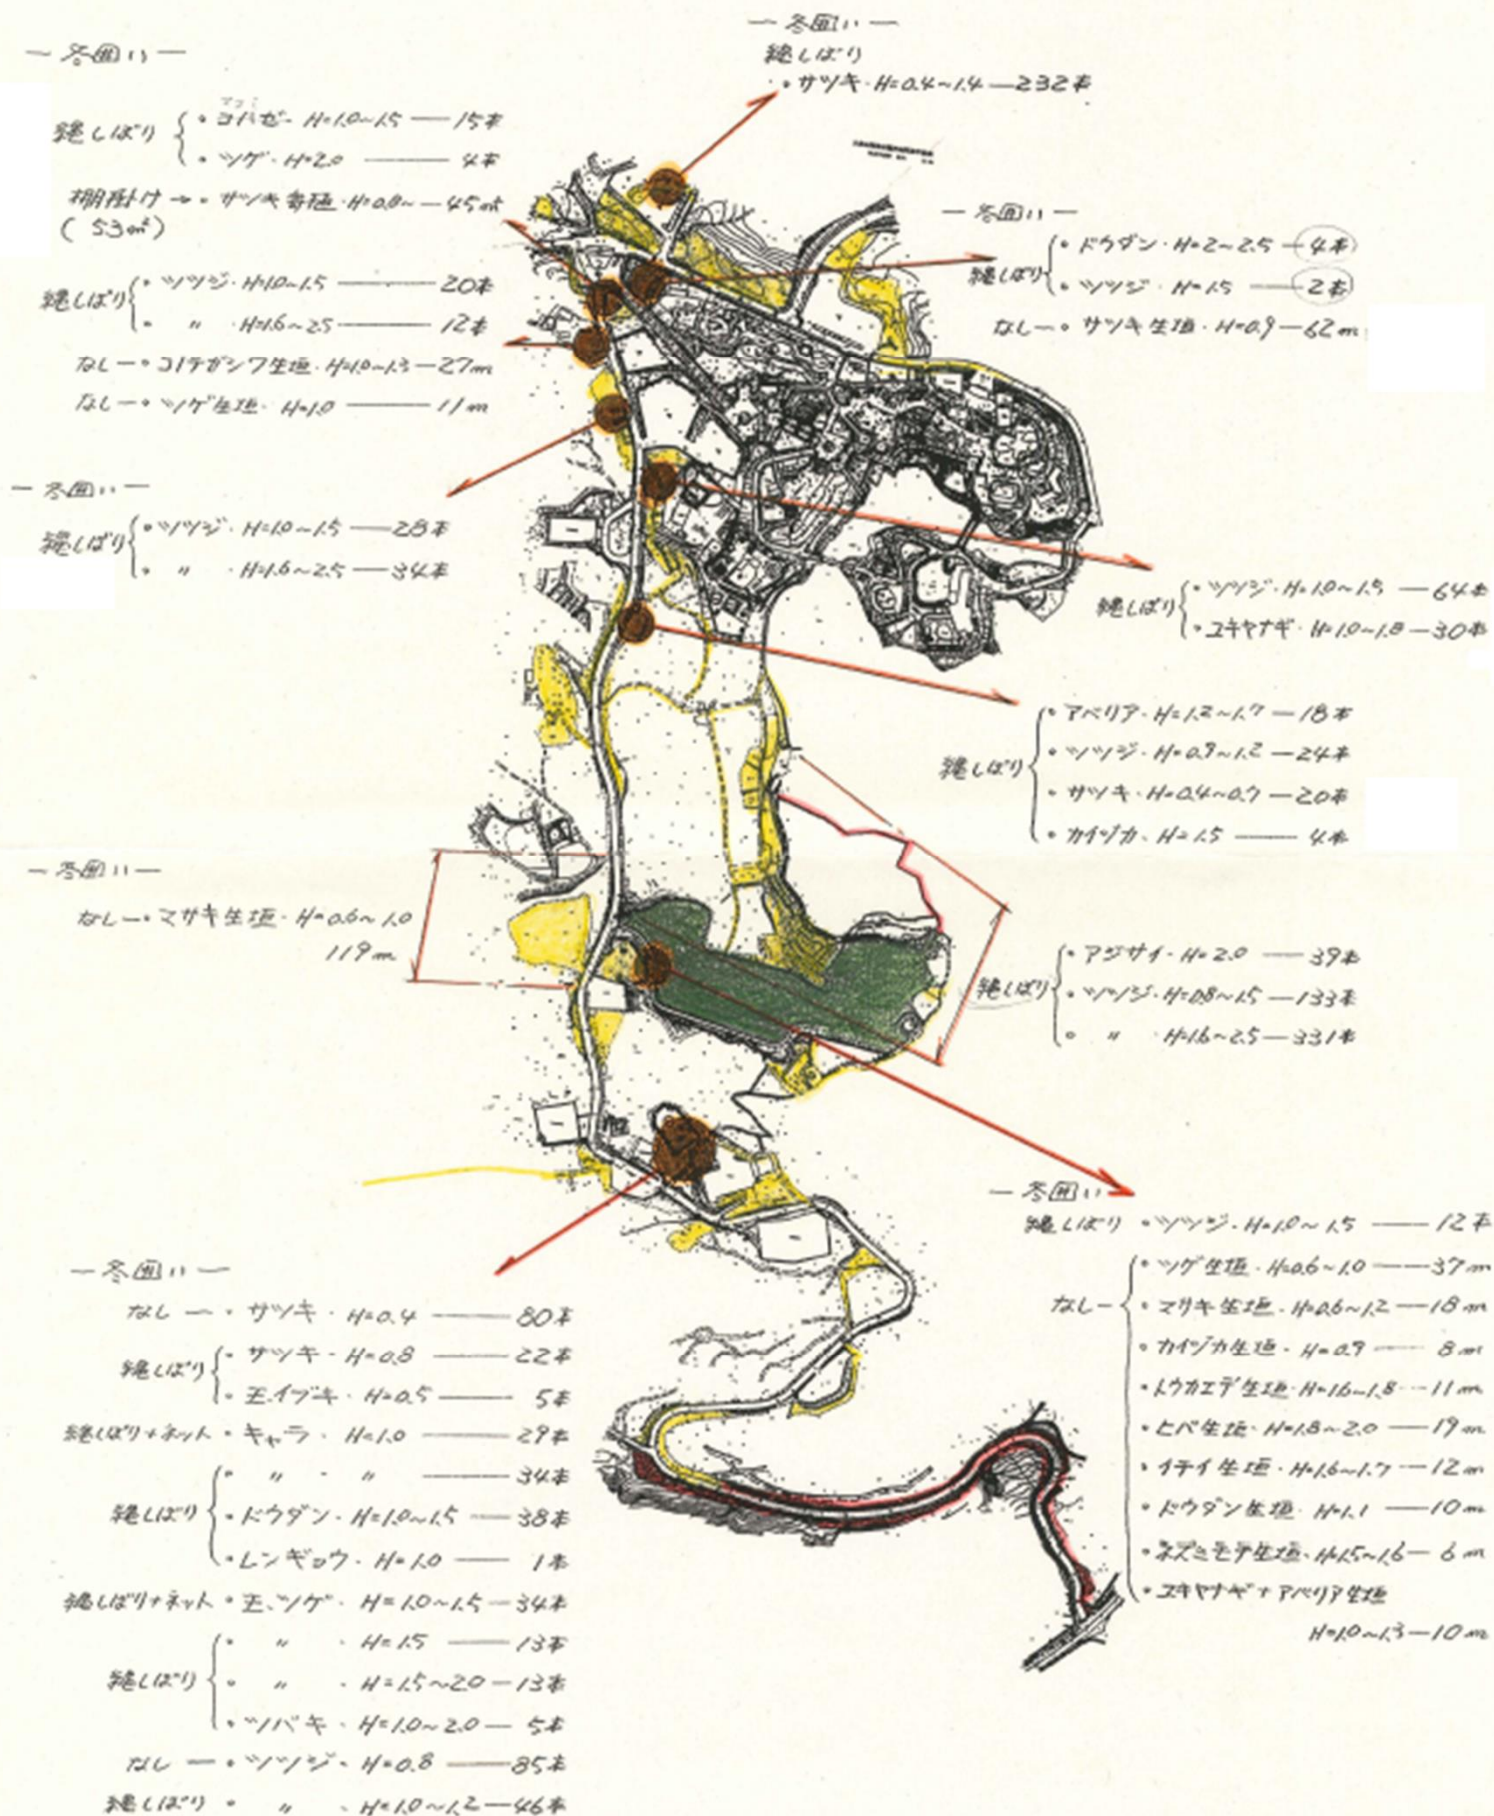 ― 冬囲い ―
縄しばり
・サツキ・H=0.4~1.4 ― 232本
― 冬囲い ―
縄しばり ・ H=1.0~1.5 ― 15本
・ツゲ・H=2.0 ― 4本
棚掛け → ・サツキ H=0.8~ ― 45㎡
(53㎡)
縄しばり ・ツツジ・H=1.0~1.5 ― 20本
・ 〃 ・H=1.6~2.5 ― 12本
なし ― ・コノテガシワ生垣・H=1.0~1.3 ― 27m
なし ― ・ツゲ生垣・H=1.0 ― 11m
― 冬囲い ―
縄しばり ・ドウダン・H=2~2.5 ― 4本
・ツツジ・H=1.5 ― 2本
なし ― ・サツキ生垣・H=0.9 ― 62m
― 冬囲い ―
縄しばり ・ツツジ・H=1.0~1.5 ― 28本
・ 〃 ・H=1.6~2.5 ― 34本
縄しばり ・ツツジ・H=1.0~1.5 ― 64本
・ユキヤナギ・H=1.0~1.8 ― 30本
縄しばり ・アベリア・H=1.2~1.7 ― 18本
・ツツジ・H=0.9~1.2 ― 24本
・サツキ・H=0.4~0.7 ― 20本
・カイヅカ・H=1.5 ― 4本
― 冬囲い ―
なし ― ・マサキ生垣・H=0.6~1.0
119m
縄しばり ・アジサイ・H=2.0 ― 39本
・ツツジ・H=0.8~1.5 ― 133本
・ 〃 ・H=1.6~2.5 ― 331本
― 冬囲い
縄しばり ・ツツジ・H=1.0~1.5 ― 12本
なし ― ・ツゲ生垣・H=0.6~1.0 ― 37m
・マサキ生垣・H=0.6~1.2 ― 18m
・カイヅカ生垣・H=0.9 ― 8m
・トウカエデ生垣・H=1.6~1.8 ― 11m
・ヒバ生垣・H=1.8~2.0 ― 19m
・イチイ生垣・H=1.6~1.7 ― 12m
・ドウダン生垣・H=1.1 ― 10m
・ネズミモチ生垣・H=1.5~1.6 ― 6m
・ユキヤナギ+アベリア生垣
H=1.0~1.3 ― 10m
― 冬囲い ―
なし ― ・サツキ・H=0.4 ― 80本
縄しばり ・サツキ・H=0.8 ― 22本
・玉イブキ・H=0.5 ― 5本
縄しばり+ネット ・キャラ・H=1.0 ― 29本
縄しばり ・ 〃 ・ 〃 ― 34本
・ドウダン・H=1.0~1.5 ― 38本
・レンギョウ・H=1.0 ― 1本
縄しばり+ネット ・玉ツゲ・H=1.0~1.5 ― 34本
縄しばり ・ 〃 ・H=1.5 ― 13本
・ 〃 ・H=1.5~2.0 ― 13本
・ツバキ・H=1.0~2.0 ― 5本
なし ― ・ツツジ・H=0.8 ― 85本
縄しばり ・ 〃 ・H=1.0~1.2 ― 46本